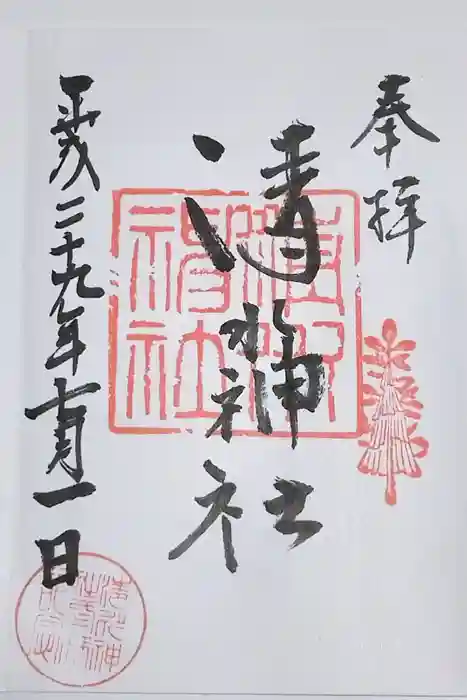 奉拝
清水神社
平成二十九年十月一日